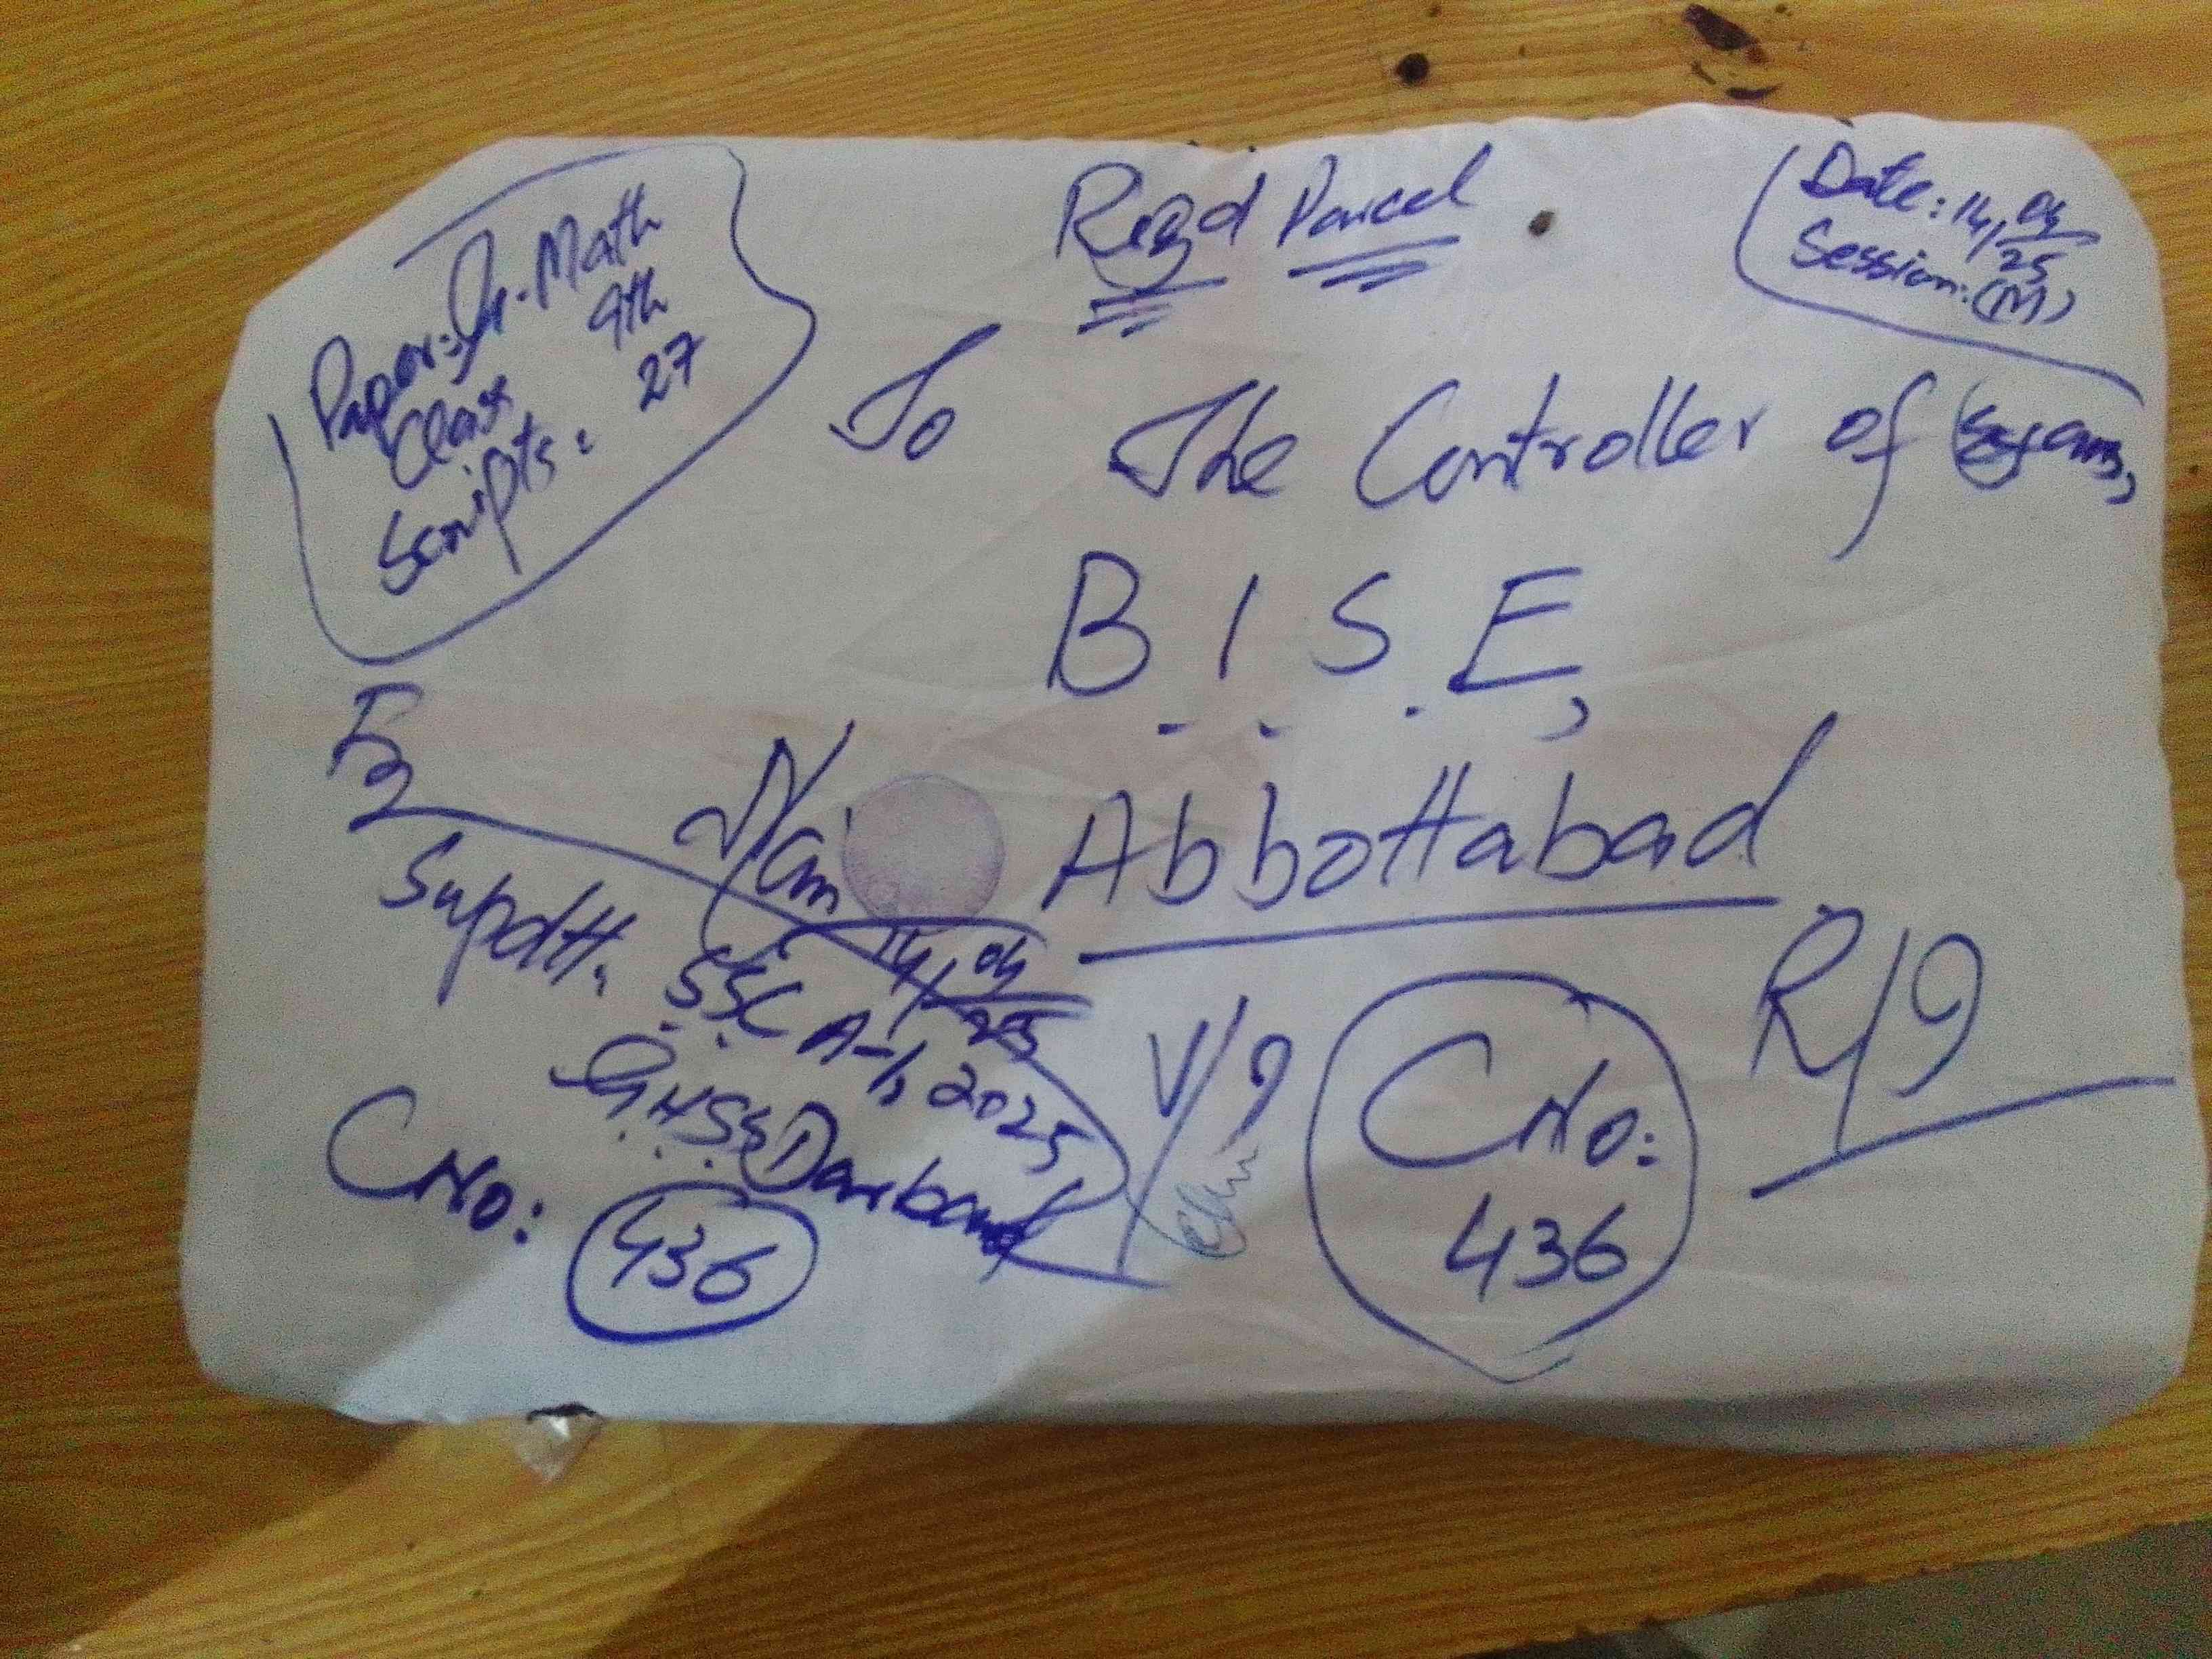 Regd Parcel
Date: 14/04/25
Session: (M)
Paper: G. Math
Class 9th
Scripts: 27
To
The Controller of Exams,
B.I.S.E,
Abbottabad
14/04/25
Supdtt. SSC A-1, 2025
G.H.S.S Darband
C No: 436
V/9
C No:
436
R/9